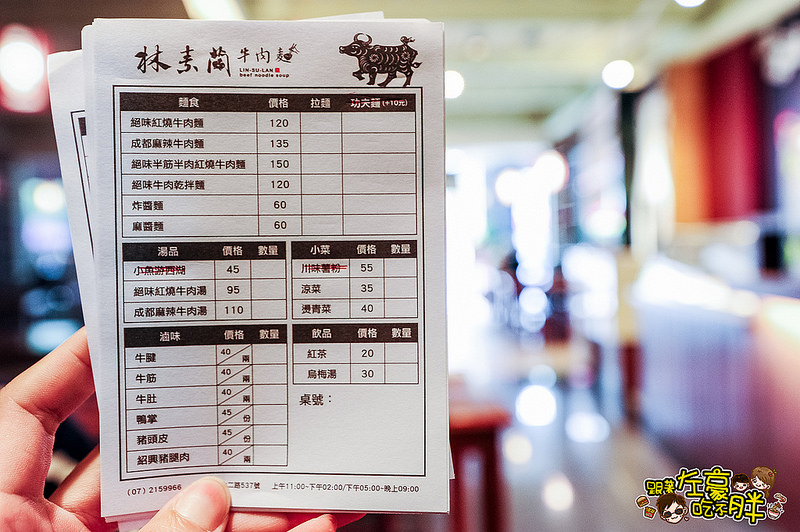 林素蘭牛肉麵
LIN-SU-LAN
beef noodle soup
麵食 價格 拉麵 功夫麵(+10元)
絕味紅燒牛肉麵 120
成都麻辣牛肉麵 135
絕味半筋半肉紅燒牛肉麵 150
絕味牛肉乾拌麵 120
炸醬麵 60
麻醬麵 60
湯品 價格 數量
小魚游西湖 45
絕味紅燒牛肉湯 95
成都麻辣牛肉湯 110
小菜 價格 數量
川味薯粉 55
涼菜 35
燙青菜 40
滷味 價格 數量
牛腱 40/兩
牛筋 40/兩
牛肚 40/兩
鴨掌 45/份
豬頭皮 45/份
紹興豬腿肉 40/兩
飲品 價格 數量
紅茶 20
烏梅湯 30
桌號：
(07) 2159966 二路537號 上午11:00~下午02:00/下午05:00~晚上09:00
跟著左豪吃不胖